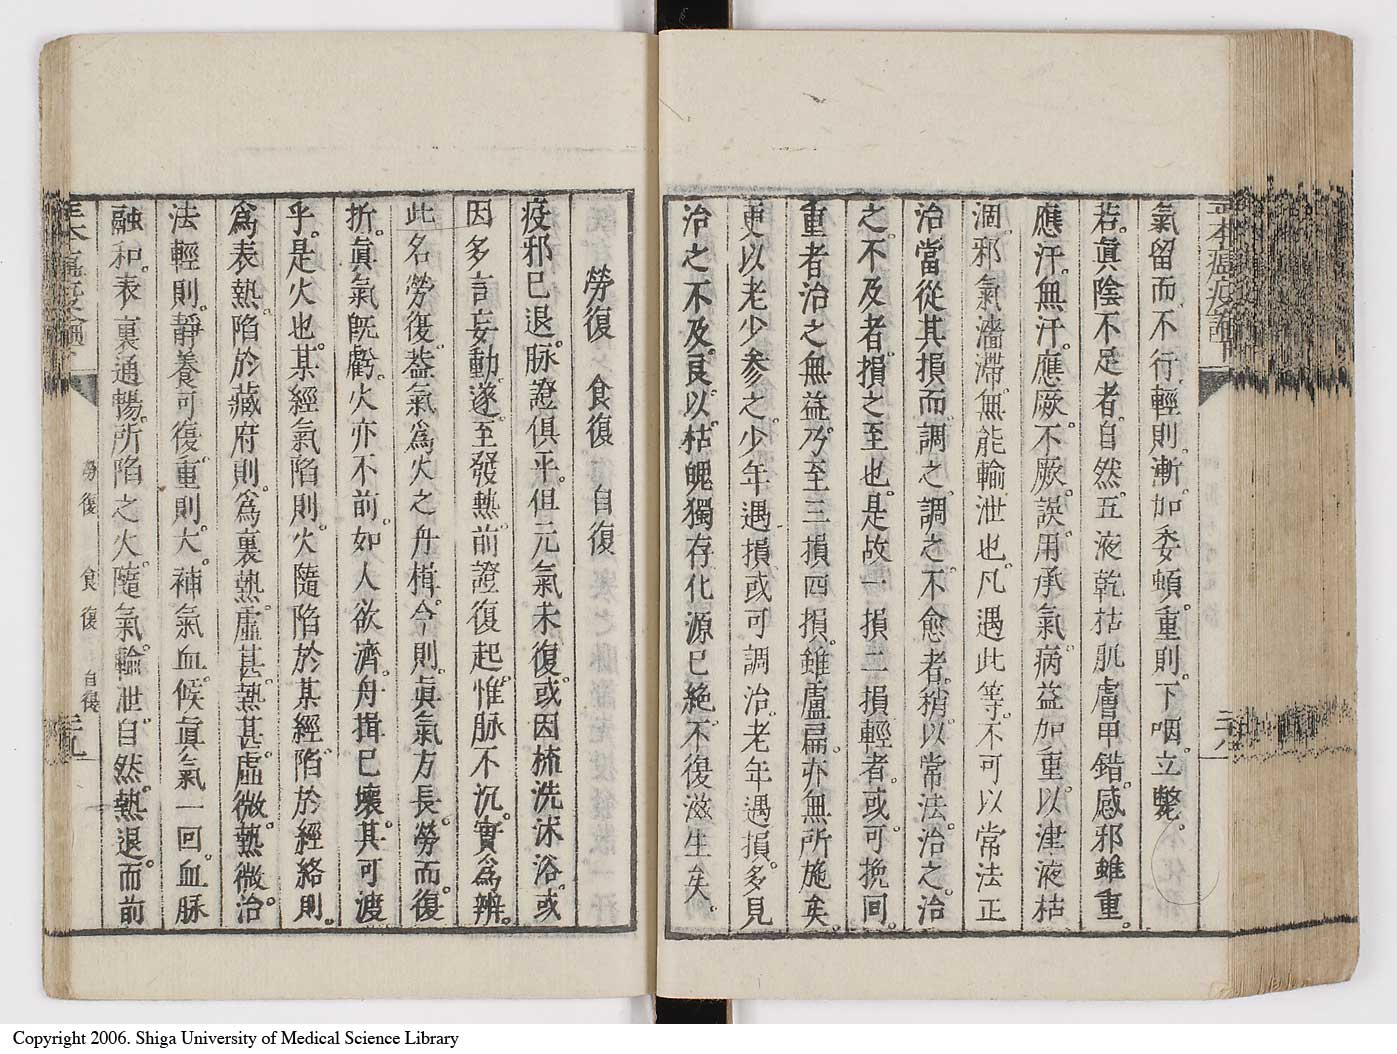 氣留而不行輕則漸加委頓重則下咽立斃。
若。眞陰不足者。自然。五液乾枯肌膚甲錯。感邪雖重。
應汗。無汗。應厥。不厥。誤用承氣病益加重以津液枯
涸邪氣濇滯無能輸泄也。凡遇此等。不可以常法正
治當從其損而調之。調之。不愈者。稍以常法治之。治
之。不及者。損之至也。是故一損二損輕者。或可挽回。
重者治之無益。乃至三損四損。雖盧扁亦無所施矣。
更以老少參之。少年遇損或可調治。老年遇損。多見
治之不及。良以。枯魄獨存化源已絶不復滋生矣。
勞復 食復 自復
疫邪已退。脉證俱平。但元氣未復。或因梳洗沐浴。或
因多言妄動。遂。至發熱前證復起。惟脉不沉。實爲辨。
此名勞復。葢氣爲火之舟楫。今則眞氣方長。勞而復
折。眞氣旣虧。火亦不前。如人欲濟。舟楫已壞。其可渡
乎。是火也。某經氣陷則。火隨陷於某經。陷於經絡則。
爲表熱。陷於藏府則。爲裏熱。虛甚。熱甚。虛微。熱微。治
法輕則。靜養可復。重則。大補氣血。候眞氣一回。血脉
融和。表裏通暢。所陷之火。隨氣輸泄。自然。熱退。而前
勞復 食復 自復